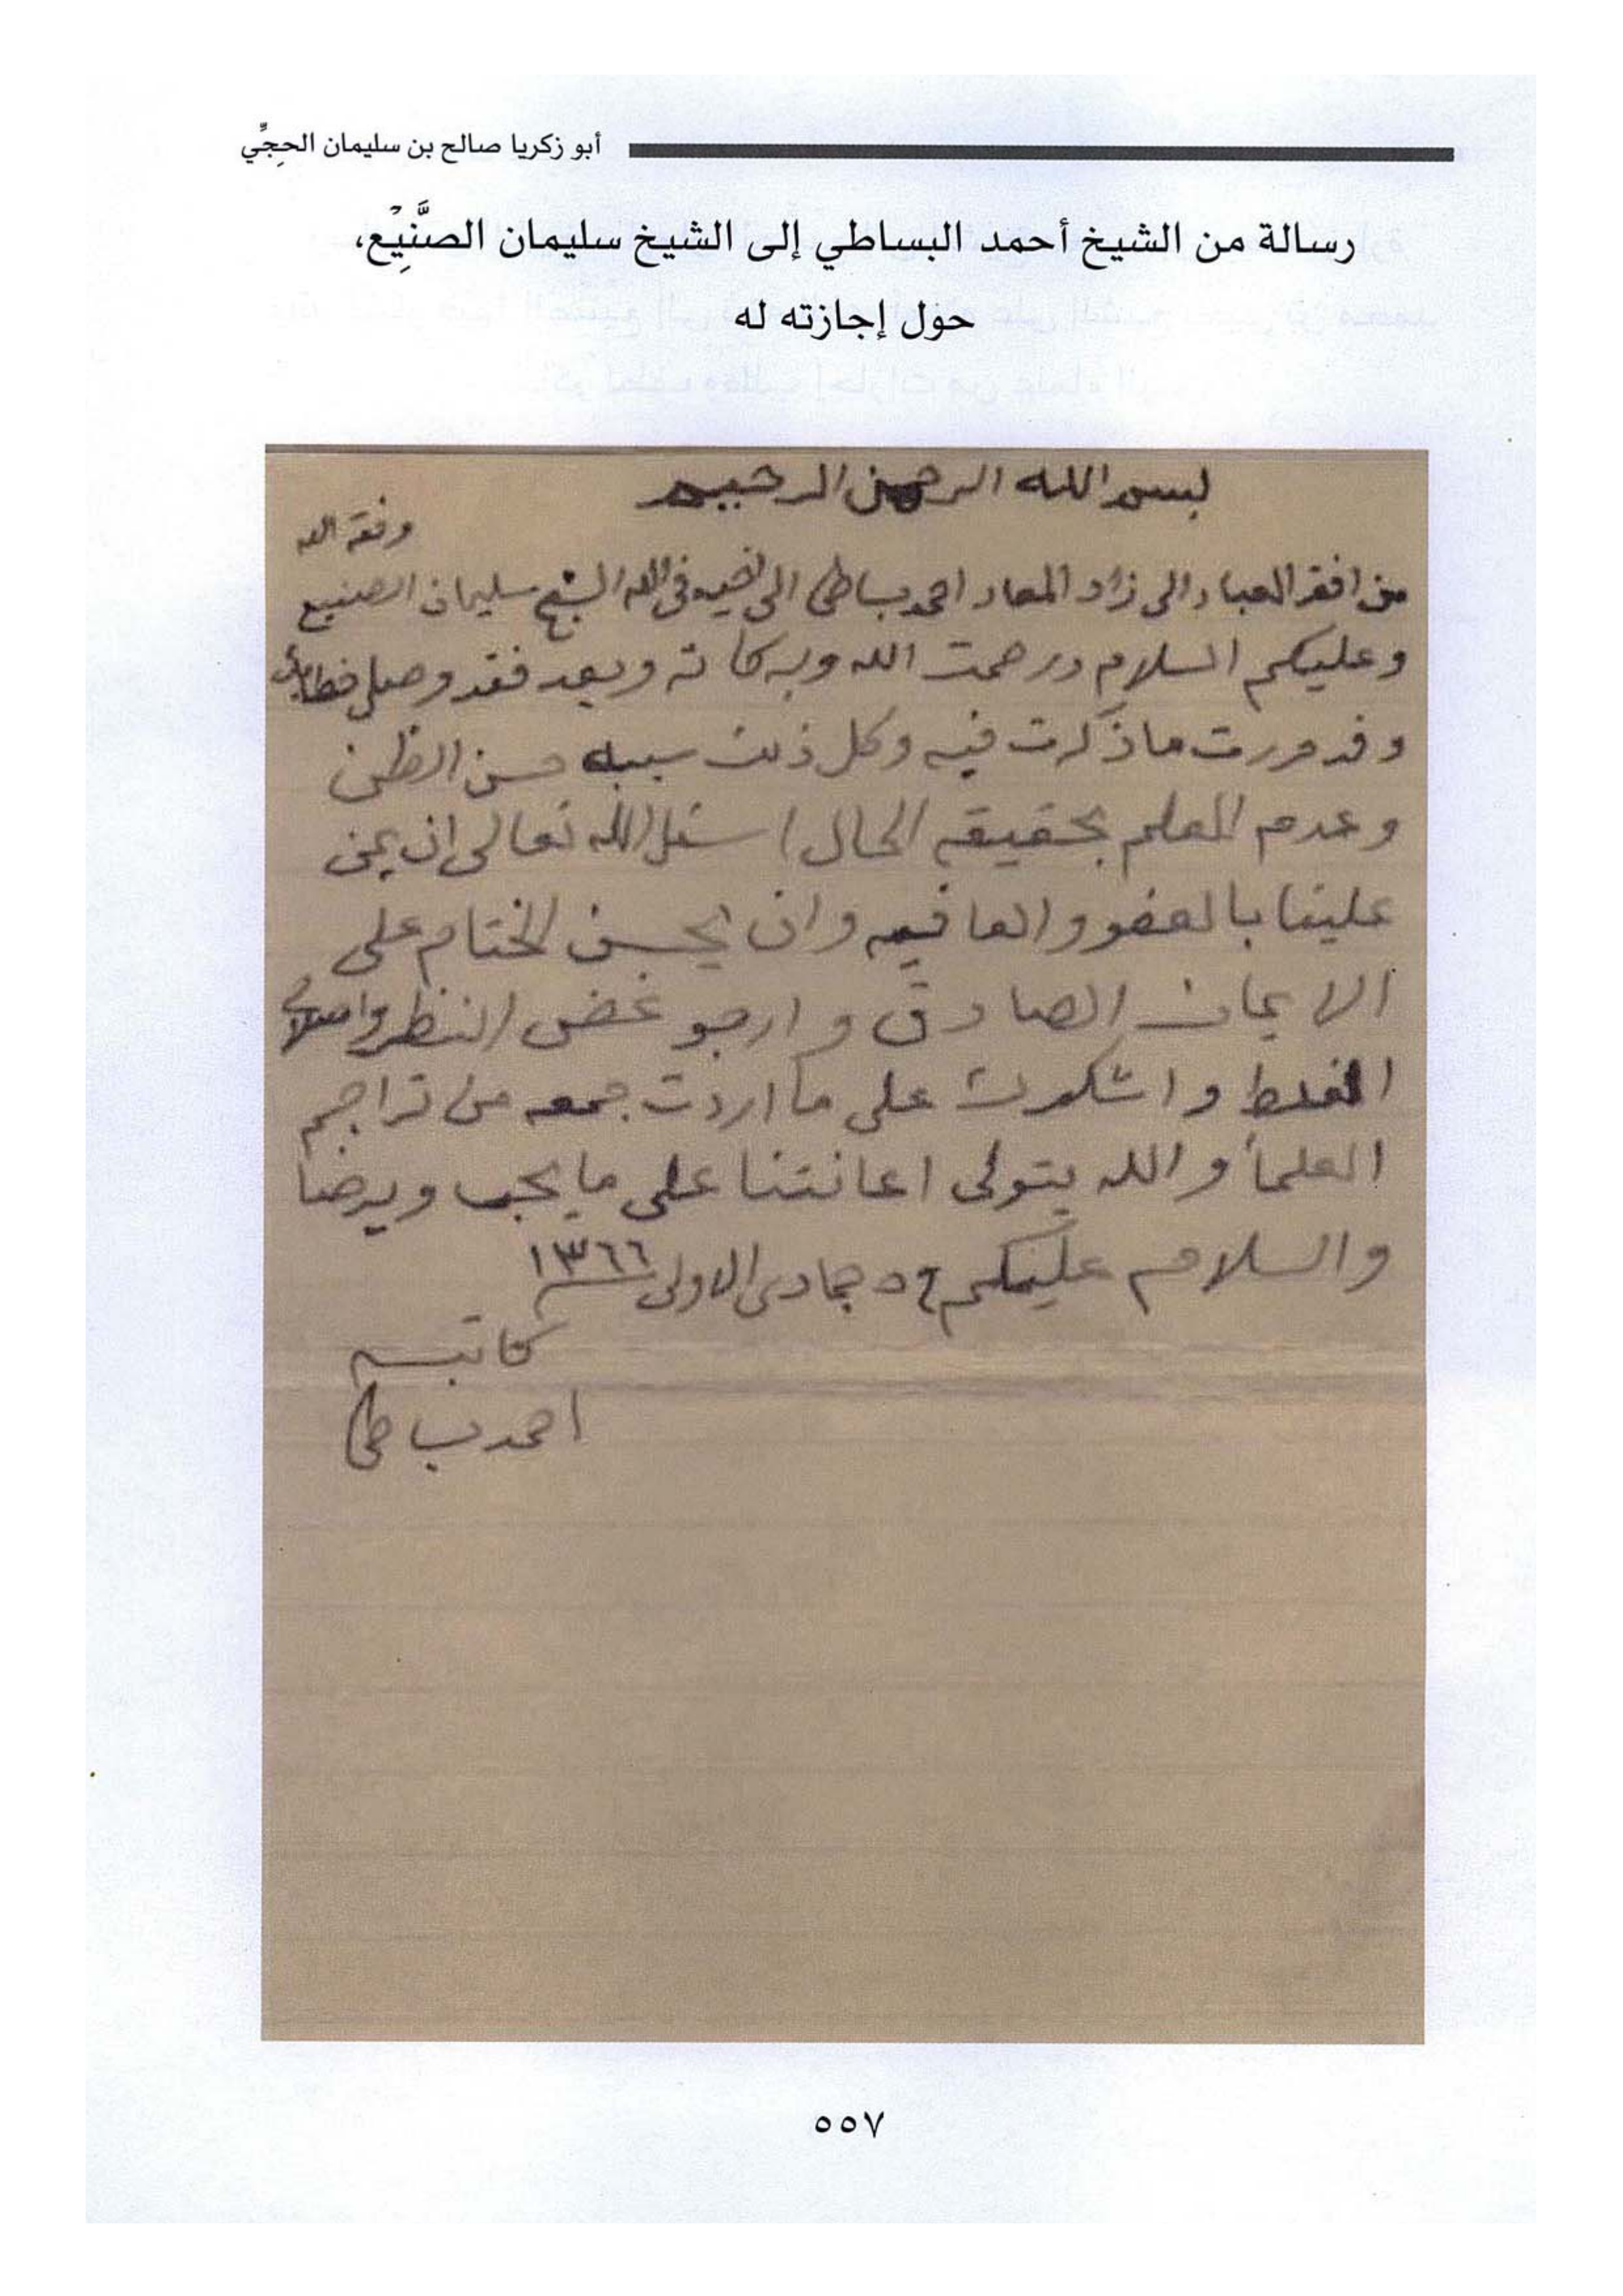 أبو زكريا صالح بن سليمان الحجِّي
رسالة من الشيخ أحمد البساطي إلى الشيخ سليمان الصَّنِيْع،
حول إجازته له
بسم الله الرحمن الرحيم
وفقه الله
من افقر العباد الى زاد المعاد احمد بساطى الى اخيه فى الله الشيخ سليمان الصنيع
وعليكم السلام ورحمت الله وبركاته وبعد فقد وصلى خطابك
وقد مررت ما ذكرت فيه وكل ذلك سببه حسن الظن
وعدم العلم بحقيقه الحال اسئل الله تعالى ان يمن
علينا بالعفو والعافيه وان يحسن الختام على
الايمان الصادق وارجو غض النظر واصلاح
الغلط واشكرك على ما اردت جمعه من تراجم
العلمأ والله يتولى اعانتنا على ما يحب ويرضا
والسلام عليكم ٥ جمادى الاولى ١٣٦٦
كاتبه
احمد بساطى
٥٥٧